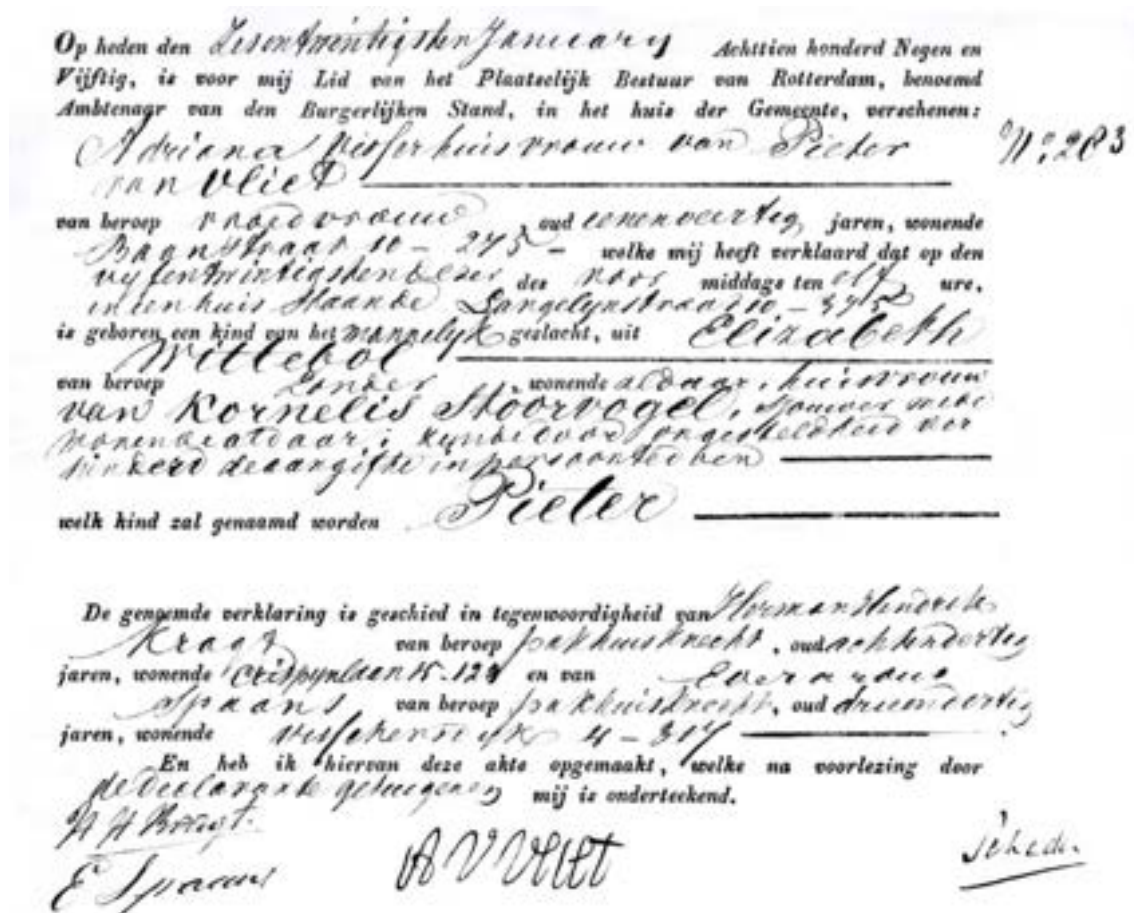 Op heden den Zesentwintigsten January Achttien honderd Negen en
Vijftig, is voor mij Lid van het Plaatselijk Bestuur van Rotterdam, benoemd
Ambtenaar van den Burgerlijken Stand, in het huis der Gemeente, verschenen:
Adriana Visser huisvrouw van Pieter
No. 283
van Vliet
van beroep vroedvrouw oud eenenveertig jaren, wonende
Baanstraat 10-275- welke mij heeft verklaard dat op den
vyfentwintigsten dezer des voor middags ten elf ure,
in een huis staande Langelynstraat 10-375
is geboren een kind van het mannelyk geslacht, uit Elizabeth
Wittebol
van beroep zonder wonende aldaar, huisvrouw
van Kornelis Stoorvogel, mede
wonende aldaar; zynde door ongesteldheid ver
hinderd de aangifte in persoon te doen
welk kind zal genaamd worden Pieter
De genoemde verklaring is geschied in tegenwoordigheid van Herman Hendrik
Kragt van beroep pakhuisknecht, oud achtendertig
jaren, wonende Crispynlaan 15-128 en van
Spaans van beroep pakhuisknecht, oud drieendertig
jaren, wonende Visschersdyk 4-317
En heb ik hiervan deze akte opgemaakt, welke na voorlezing door
de Declarante getuigen mij is onderteekend.
H H Kragt.
E Spaans A V Vliet